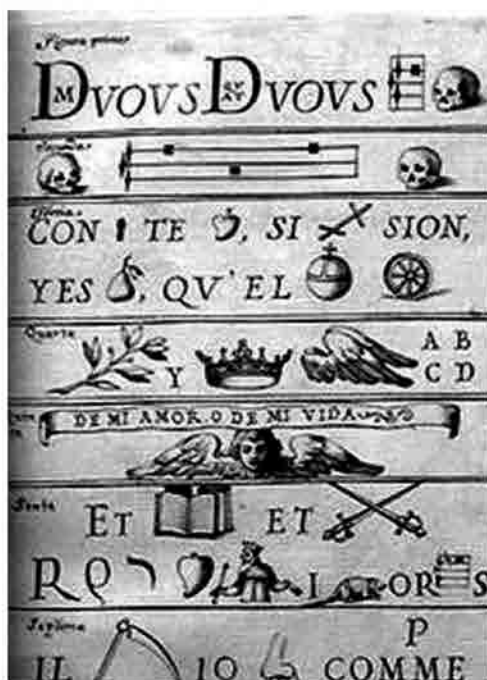 Figura primer
DVOVS DVOVS
M
CON TE , SI SION,
YES , QV'EL
Quarta
Y A B
C D
DE MI AMOR. O DE MI VIDA
Sexta
ET ET
R I OR S
Septima
P
IL IO COMME